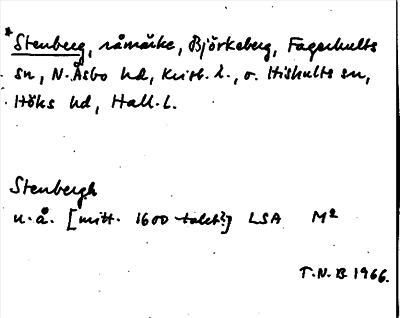 *Stenberg, råmärke, Björkeberg, Fagerhults
sn, N. Åsbo hd, Krist. l., o. Hishults sn,
Höks hd, Hall. l.
Stenbergh
u.å. [mitt. 1600 talet?] LSA M2
T.N.B. 1966.